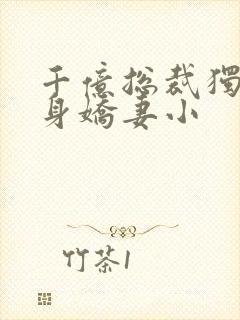 千億總裁獨
身嬌妻小
竹茶1